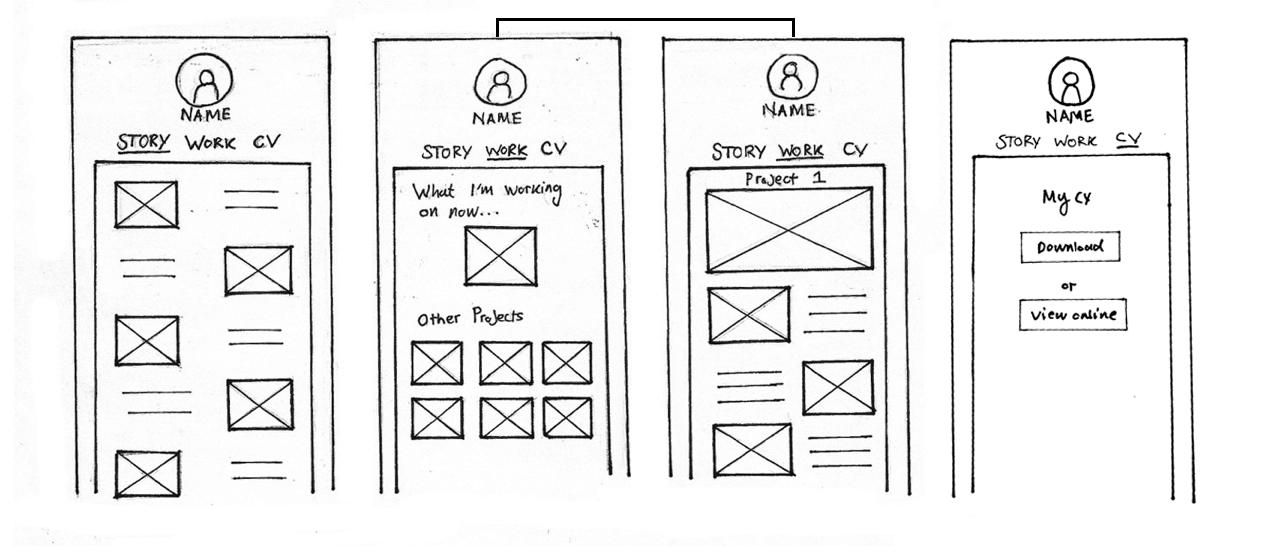 NAME
STORY WORK CV
NAME
STORY WORK CV
What I'm working
on now...
Other Projects
NAME
STORY WORK CV
Project 1
NAME
STORY WORK CV
My CV
Download
or
View online